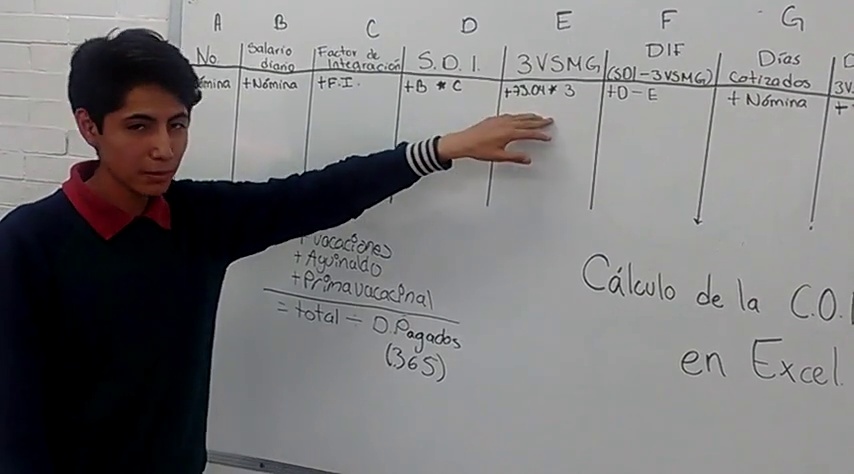 A B C D E F G
No. Salario diario Factor de Integración S.D.I. 3VSMG DIF (SDI-3VSMG) Días cotizados
ómina +Nómina +F.I. +B * C +73.04 * 3 +D-E + Nómina +
vacaciones
+ Aguinaldo
+ Prima vacacinal
= total ÷ D.Pagados
(365)
Cálculo de la C.O.
en Excel.